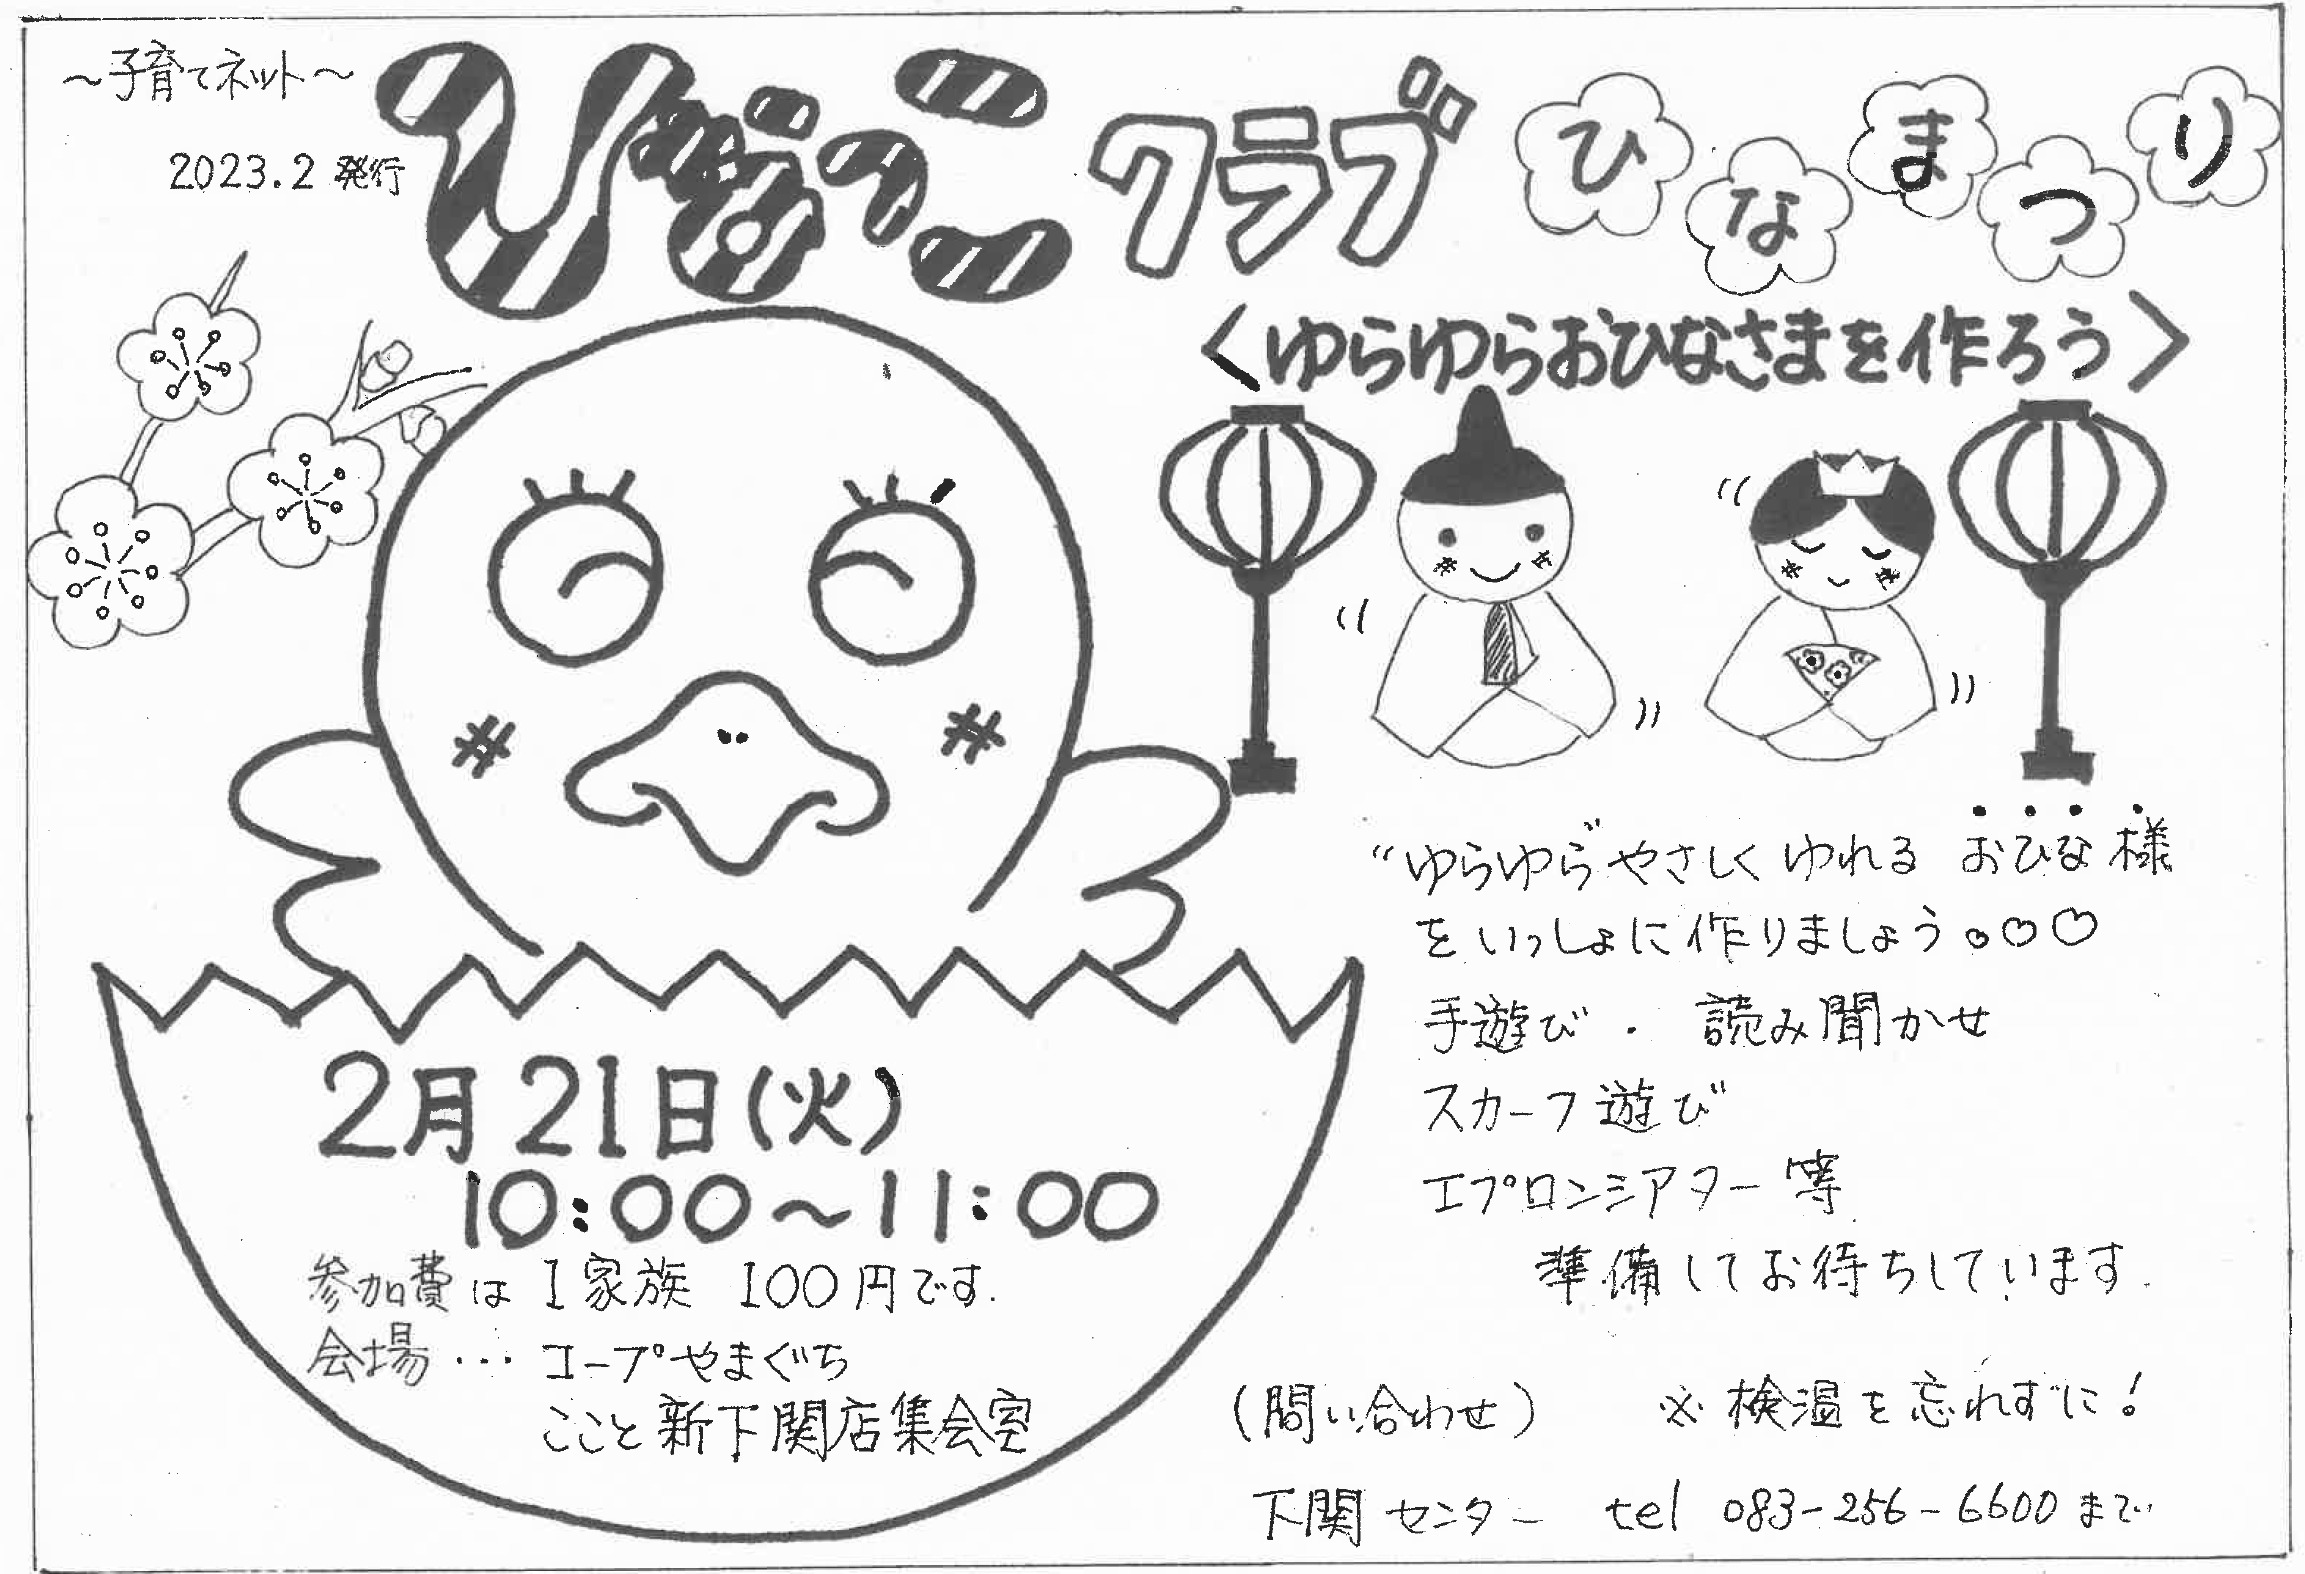 ～子育てネット～
2023.2 発行
ぴよっこクラブ ひなまつり
＜ゆらゆらおひなさまを作ろう＞
"ゆらゆら"やさしくゆれる おひな様
をいっしょに作りましょう。○♡
手遊び・読み聞かせ
スカーフ遊び
エプロンシアター等
準備してお待ちしています.
2月21日(火)
10:00～11:00
参加費は 1家族 100円です.
会場… コープやまぐち
ここと新下関店集会室
(問い合わせ) ※検温を忘れずに!
下関センター tel 083-256-6600まで